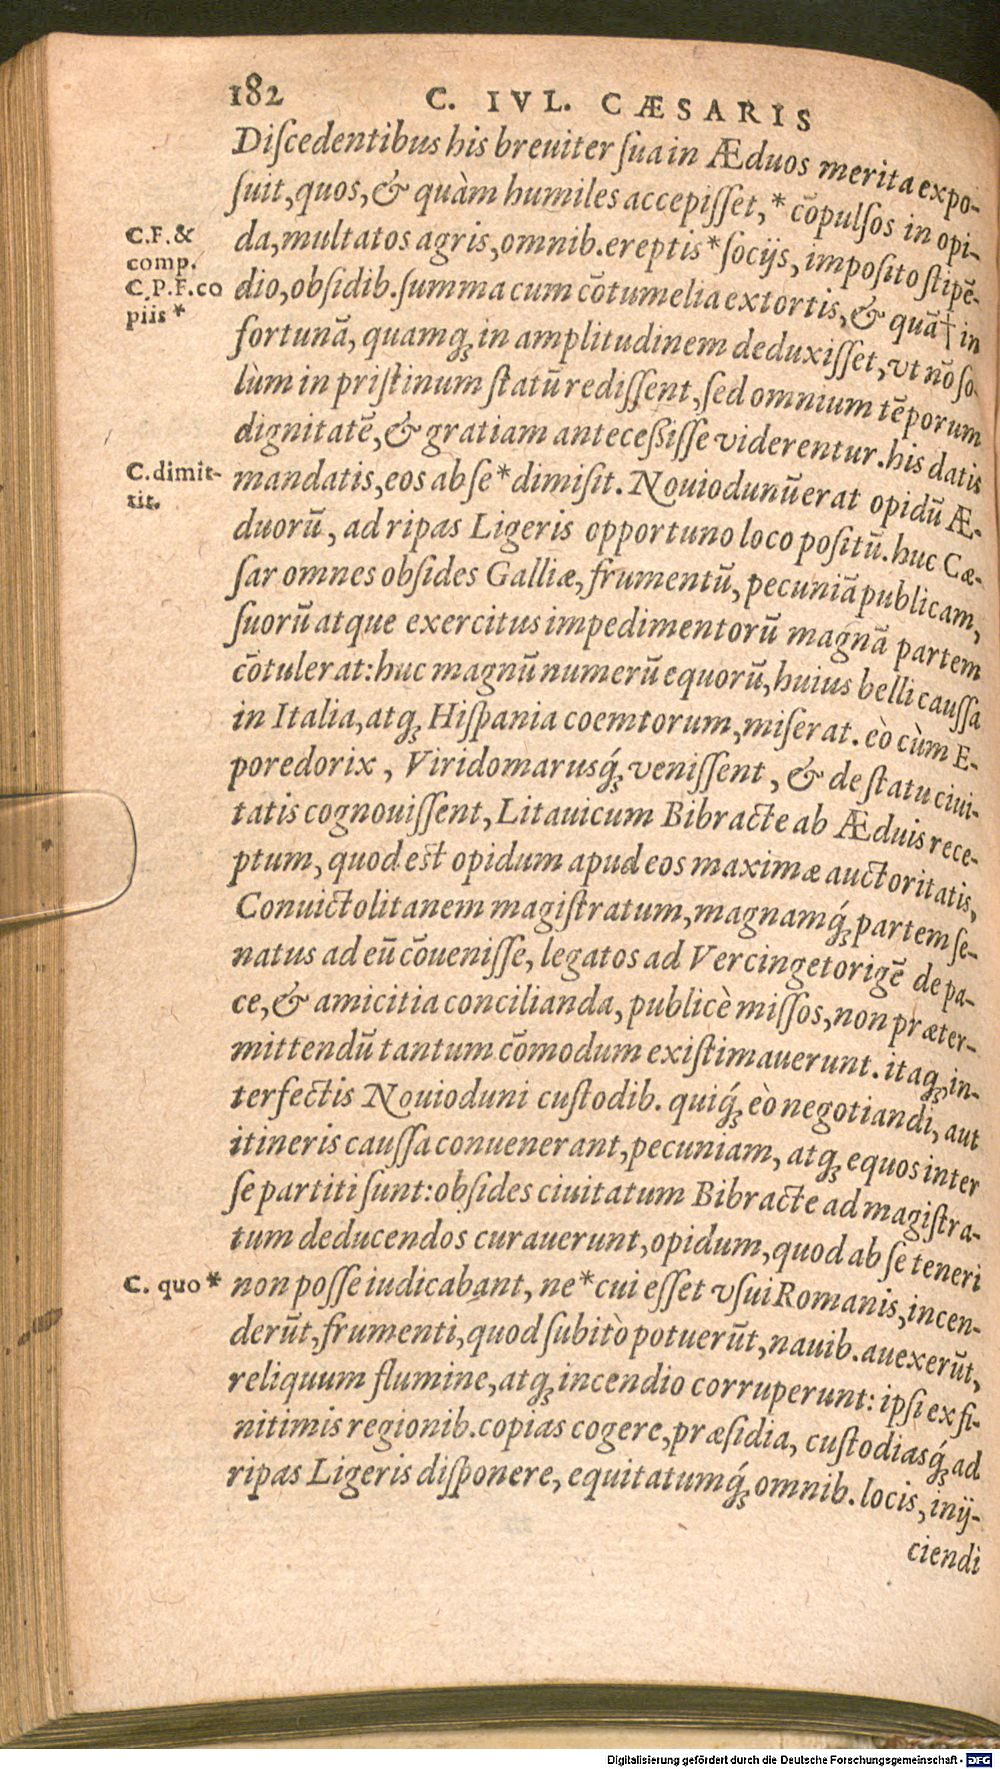 182 C. IVL. CÆSARIS
Diſcedentibus his breuiter ſua in Æduos merita expo-
ſuit, quos, & quàm humiles accepiſſet, * cōpulſos in opi-
C.F. &
comp.
da, multatos agris, omnib. ereptis * ſocijs, impoſito ſtipē-
C.P.F. co
piis *
dio, obſidib. ſumma cum cōtumelia extortis, & quā † in
fortunā, quamq́ꝫ in amplitudinem deduxiſſet, vt nō ſo-
lùm in priſtinum ſtatū rediſſent, ſed omnium tēporum
dignitatē, & gratiam anteceßiſſe viderentur. his datis
C. dimit-
tit.
mandatis, eos ab ſe * dimiſit. Nouiodunū erat opidū Æ-
duorū, ad ripas Ligeris opportuno loco poſitū. huc Cæ-
ſar omnes obſides Galliæ, frumentū, pecuniā publicam,
ſuorū atque exercitus impedimentorū magnā partem
cōtulerat: huc magnū numerū equorū, huius belli cauſſa
in Italia, atqꝫ Hiſpania coemtorum, miſerat. eò cùm E-
poredorix, Viridomarusq́ꝫ veniſſent, & de ſtatu ciui-
tatis cognouiſſent, Litauicum Bibracte ab Æduis rece-
ptum, quod est opidum apud eos maximæ auctoritatis,
Conuictolitanem magiſtratum, magnamq́ꝫ partem ſe-
natus ad eū cōueniſſe, legatos ad Vercingetorigē de pa-
ce, & amicitia concilianda, publicè miſſos, non præter-
mittendū tantum cōmodum exiſtimauerunt. itaqꝫ in-
terfectis Nouioduni cuſtodib. quiq́ꝫ eò negotiandi, aut
itineris cauſſa conuenerant, pecuniam, atqꝫ equos inter
ſe partiti ſunt: obſides ciuitatum Bibracte ad magiſtra-
tum deducendos curauerunt, opidum, quod ab ſe teneri
C. quo *
non poſſe iudicabant, ne * cui eſſet vſui Romanis, incen-
derūt, frumenti, quod ſubitò potuerūt, nauib. auexerūt,
reliquum flumine, atqꝫ incendio corruperunt: ipſi ex fi-
nitimis regionib. copias cogere, præſidia, cuſtodiasq́ꝫ ad
ripas Ligeris diſponere, equitatumq́ꝫ omnib. locis, inij-
ciendi
Digitalisierung gefördert durch die Deutsche Forschungsgemeinschaft - DFG